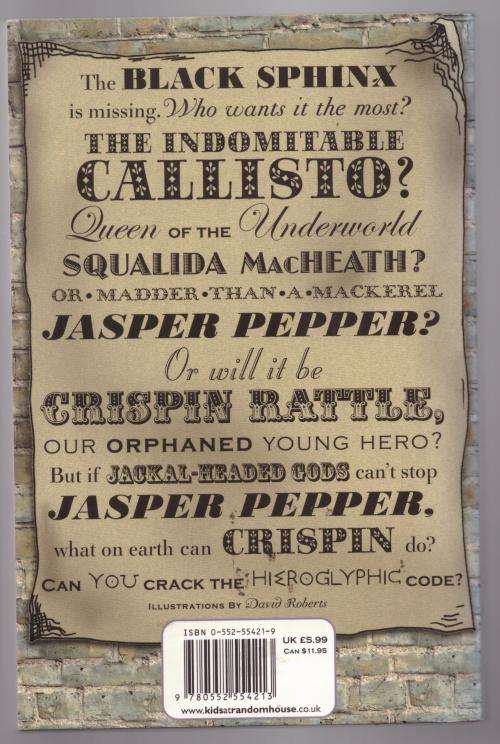 The BLACK SPHINX
is missing. Who wants it the most?
THE INDOMITABLE
CALLISTO?
Queen OF THE Underworld
SQUALIDA MacHEATH?
OR • MADDER • THAN • A • MACKEREL
JASPER PEPPER?
Or will it be
CRISPIN RATTLE,
OUR ORPHANED YOUNG HERO?
But if JACKAL-HEADED GODS can't stop
JASPER PEPPER,
what on earth can CRISPIN do?
CAN YOU CRACK THE HIEROGLYPHIC CODE?
ILLUSTRATIONS BY David Roberts
ISBN 0-552-55421-9
UK £5.99
CAN $11.95
9 780552 554213
www.kidsatrandomhouse.co.uk